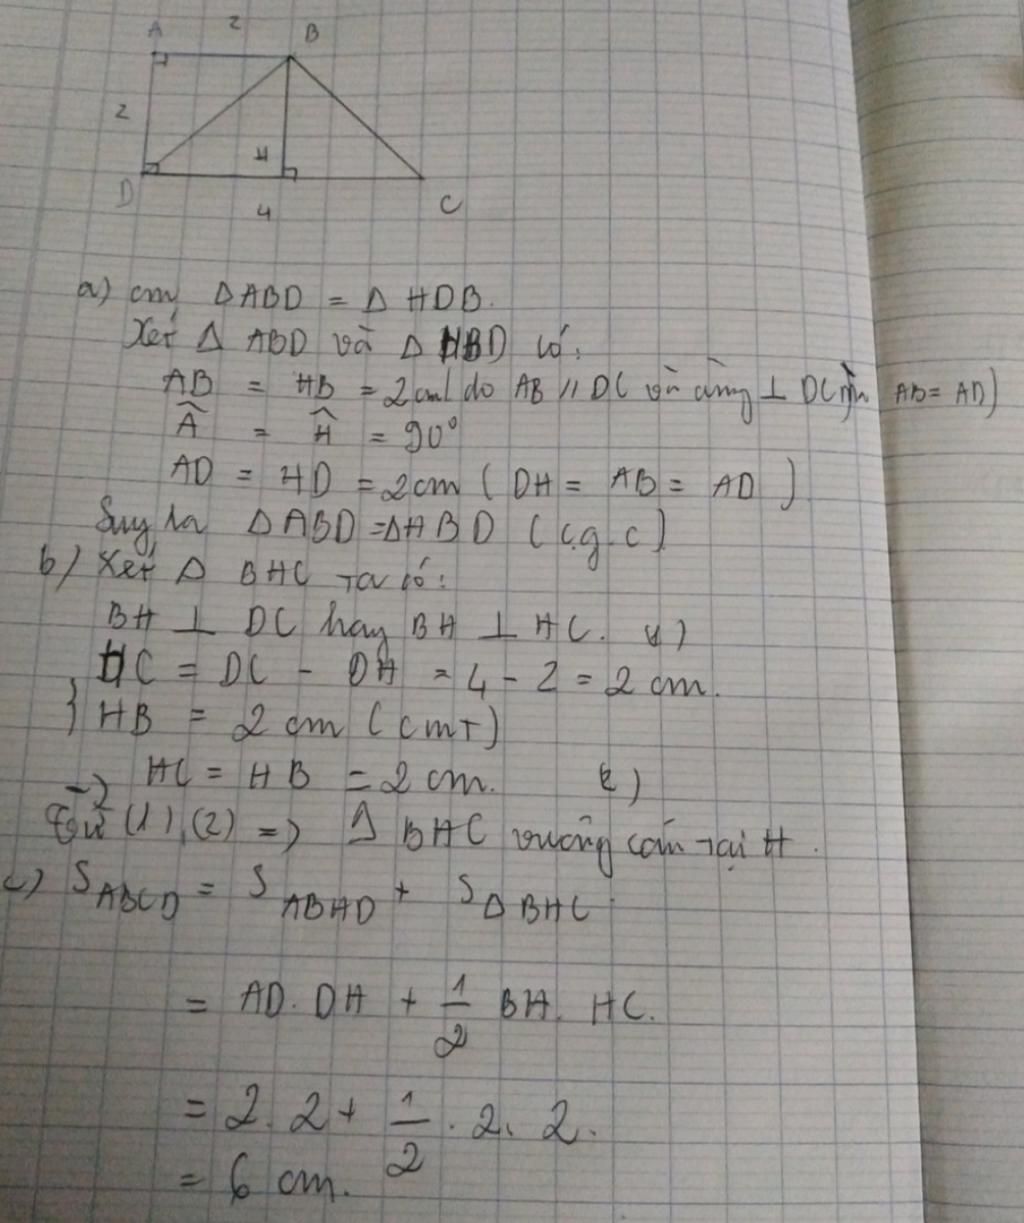 A 2 B
2
H
D
4
C
a) cm ΔABD = Δ HDB.
Xét Δ ABD và Δ HBD có:
AB = HB = 2cm (do AB // DC và cùng ⊥ DC AB = AD)
Â = Ĥ = 90°
AD = HD = 2cm ( DH = AB = AD )
Suy ra ΔABD = ΔHBD (c.g.c)
b) Xét Δ BHC ta có:
BH ⊥ DC hay BH ⊥ HC. (1)
HC = DC - DH = 4 - 2 = 2 cm.
} HB = 2 cm (cmT)
→ HC = HB = 2 cm. (2)
Từ (1), (2) => Δ BHC vuông cân tại H.
c) S ABCD = S ABHD + S Δ BHC
= AD. DH + 1/2 BH. HC.
= 2. 2 + 1/2 . 2. 2.
= 6 cm.